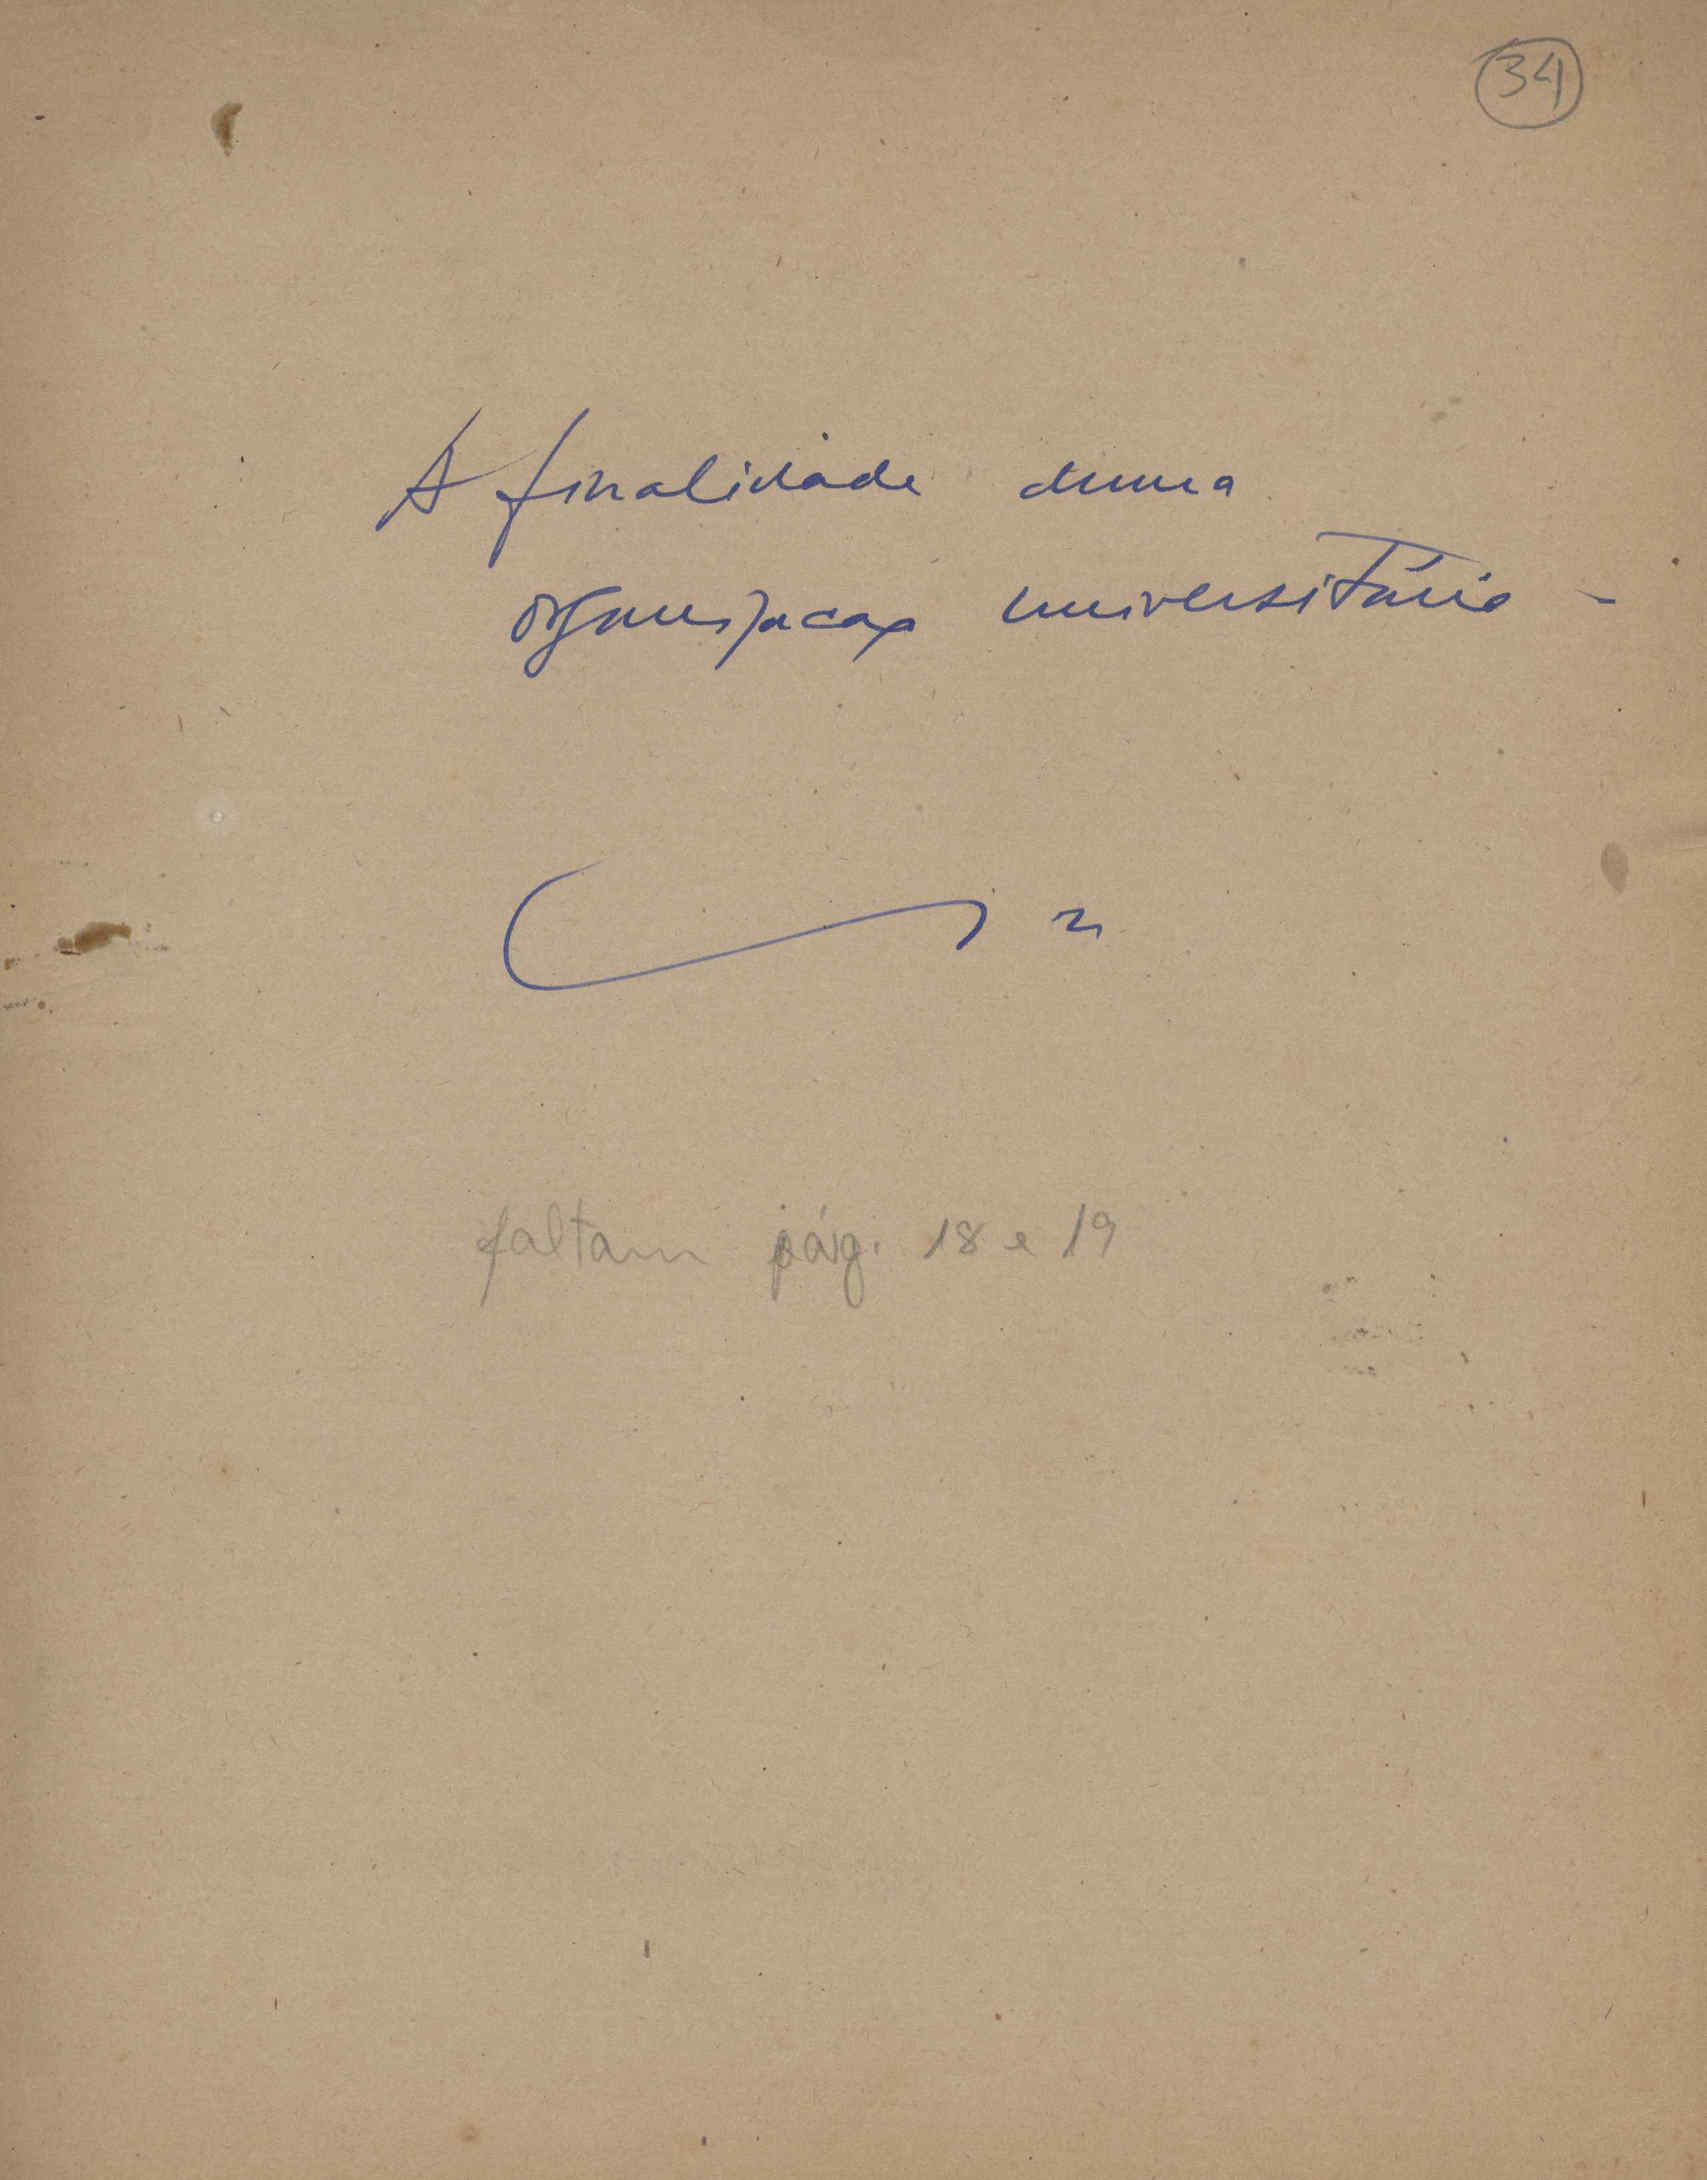 34
A finalidade duma
organizacao universitária -
faltam pág. 18 e 19